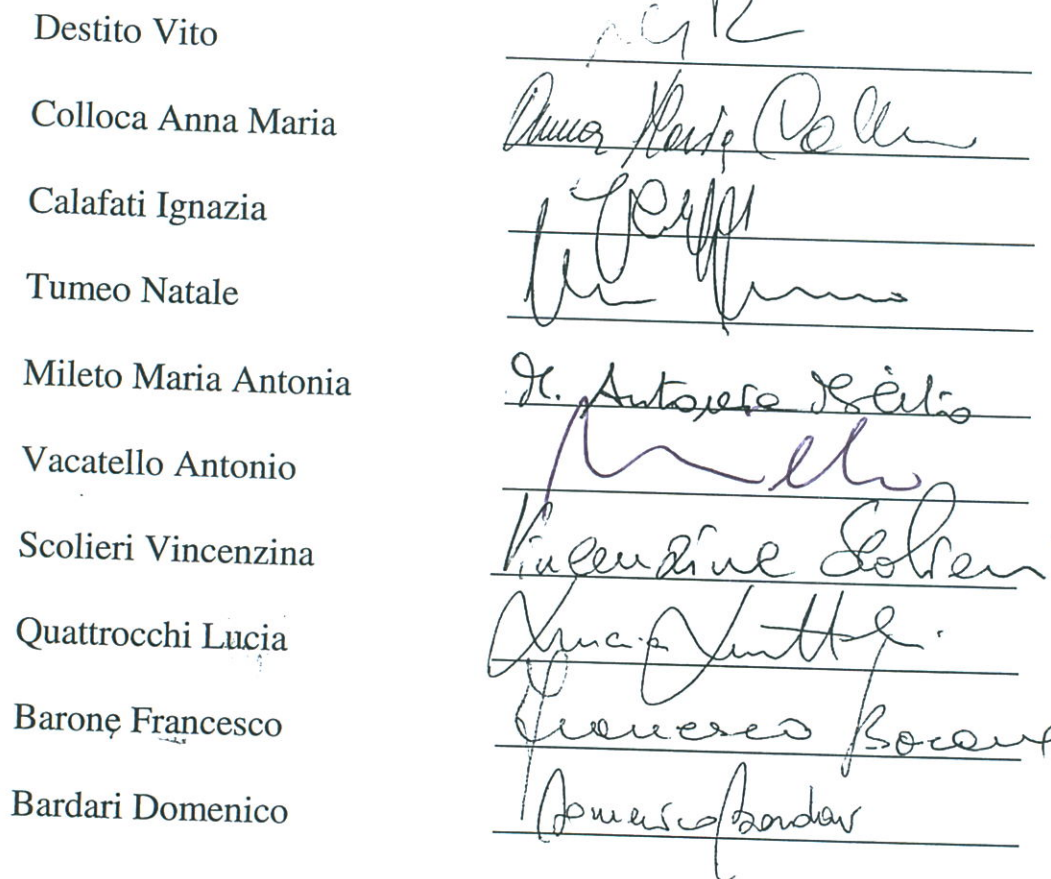 Destito Vito
Colloca Anna Maria Anna Maria Coll
Calafati Ignazia
Tumeo Natale
Mileto Maria Antonia M. Antonia Mileto
Vacatello Antonio
Scolieri Vincenzina Vincenzina Scolieri
Quattrocchi Lucia Lucia
Barone Francesco Francesco Barone
Bardari Domenico Domenico Bardari